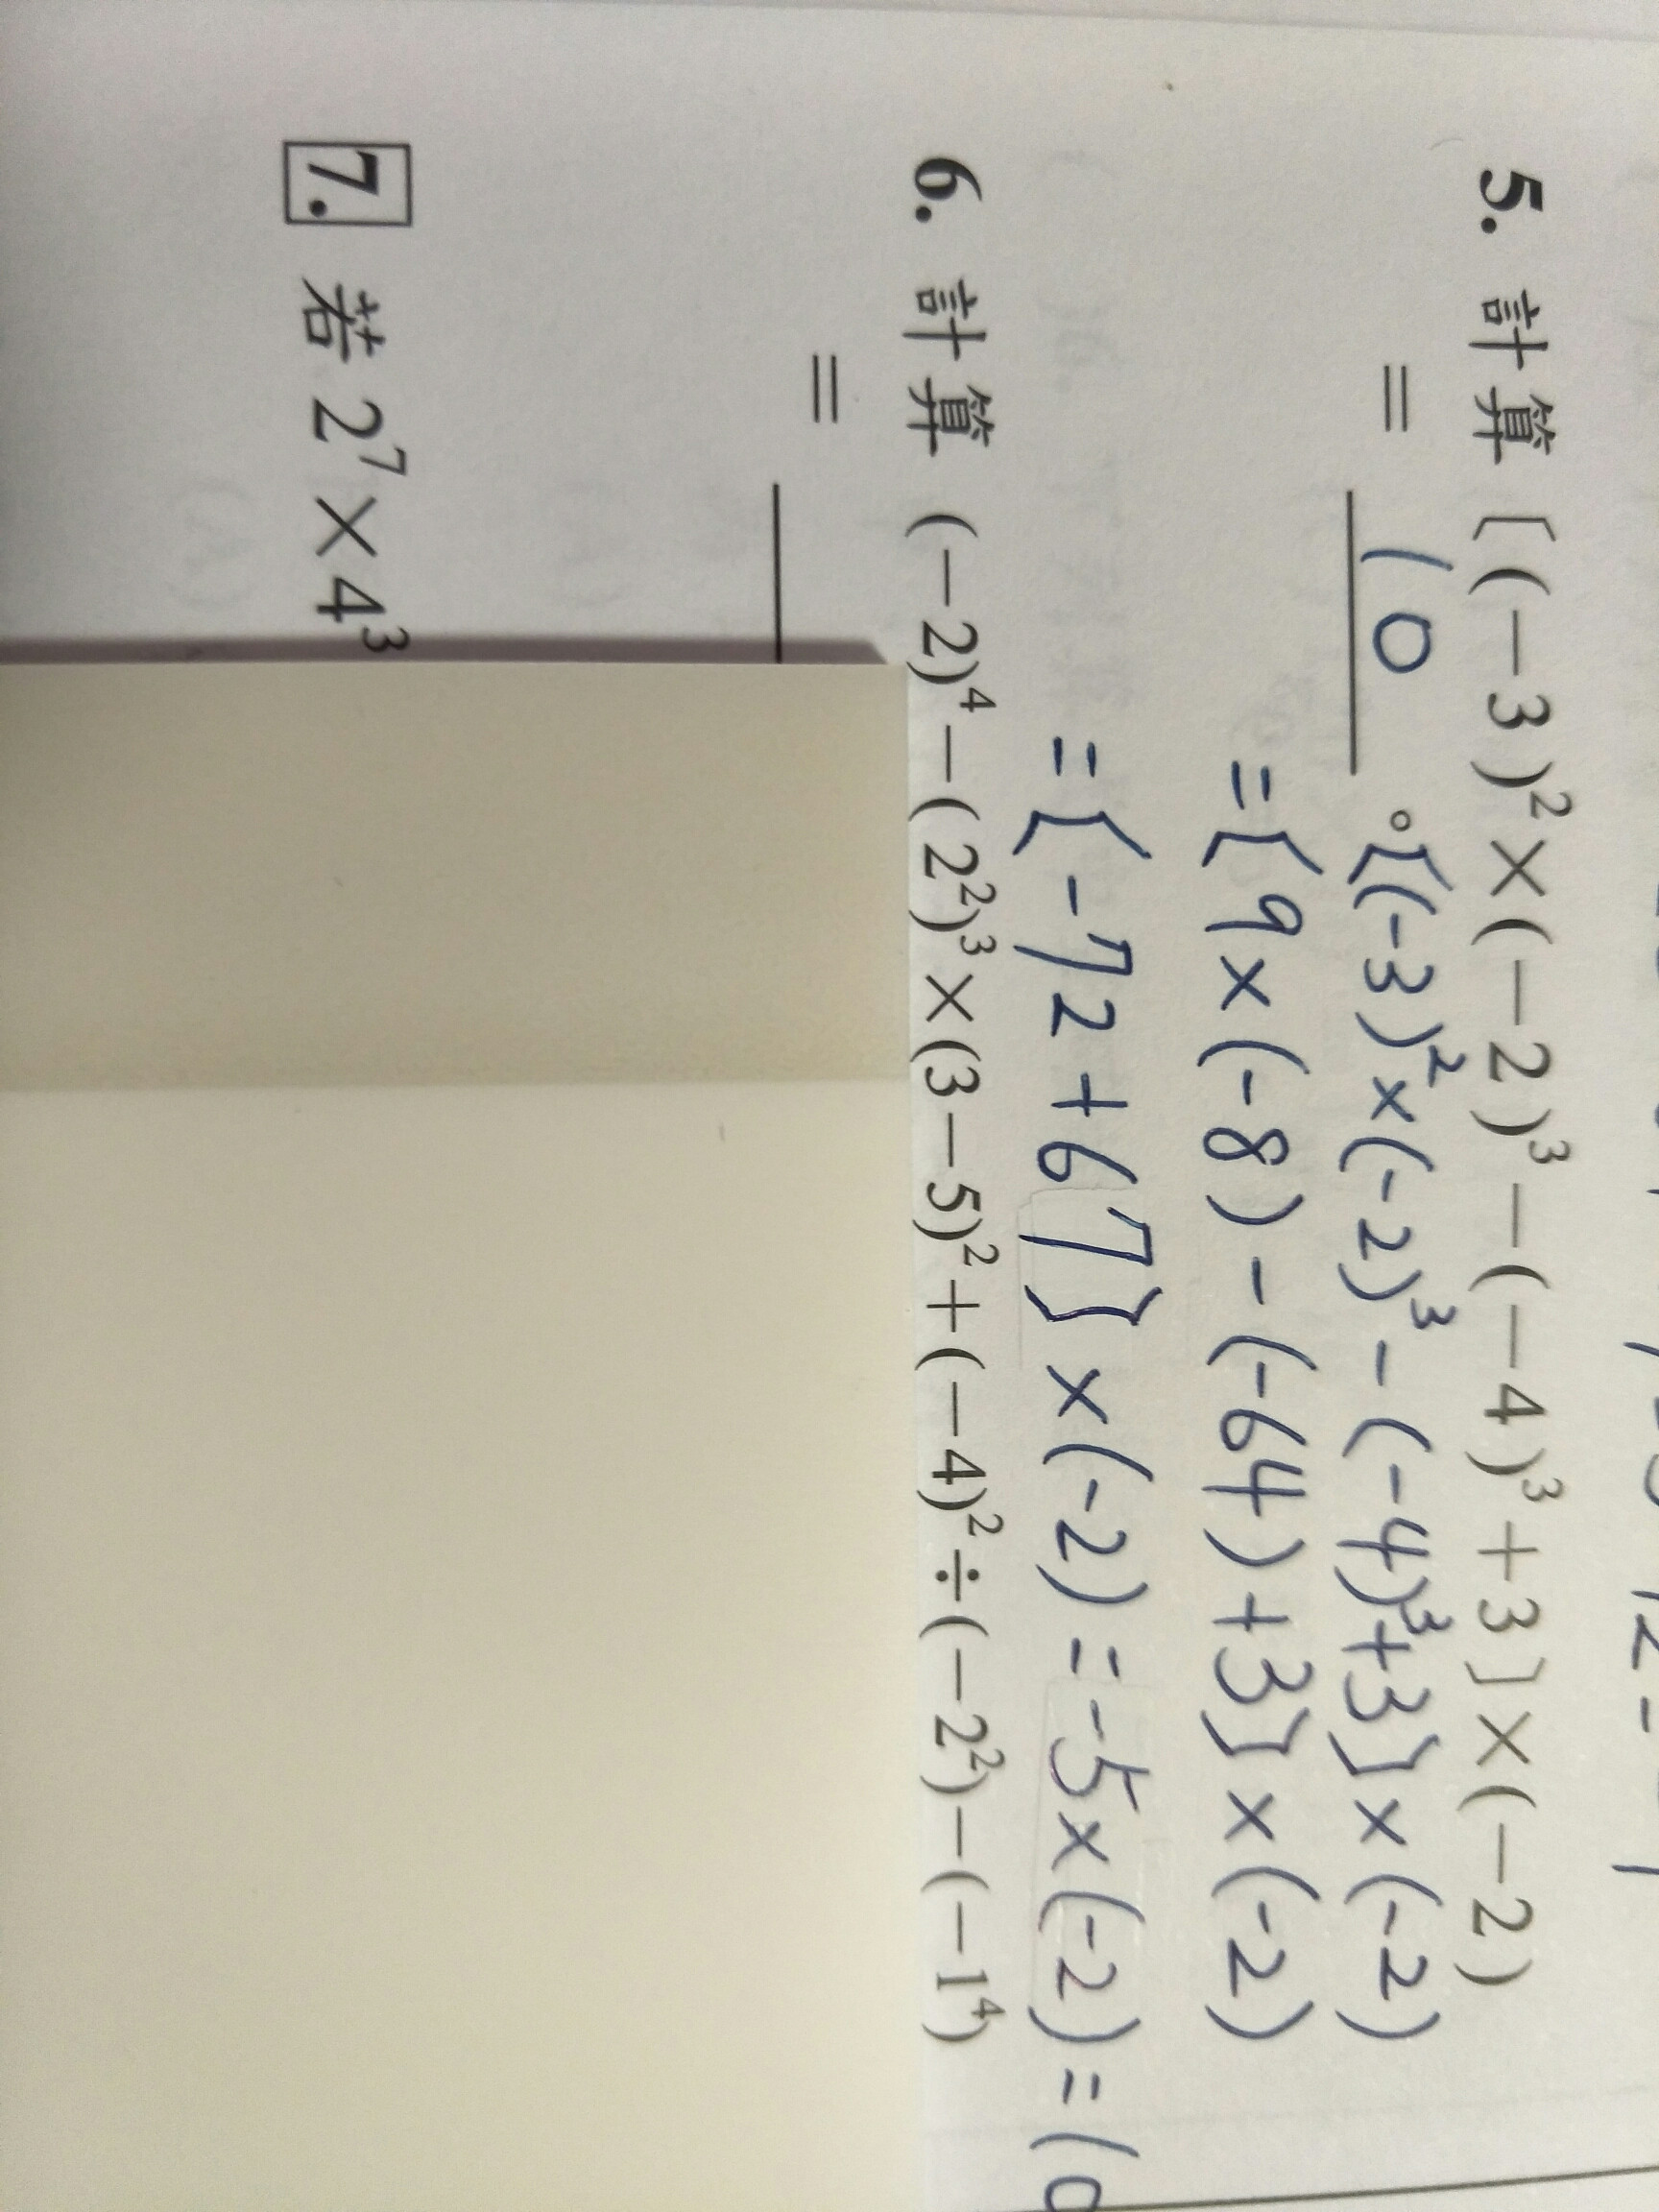 5. 計算〔(−3)²×(−2)³−(−4)³+3〕×(−2)
= 10 。[(-3)²×(-2)³-(-4)³+3]×(-2)
=[9×(-8)-(-64)+3]×(-2)
=[-72+67]×(-2)=-5×(-2)=10
6. 計算 (−2)⁴−(2²)³×(3−5)²+(−4)²÷(−2²)−(−1⁴)
=
7. 若 2⁷×4³